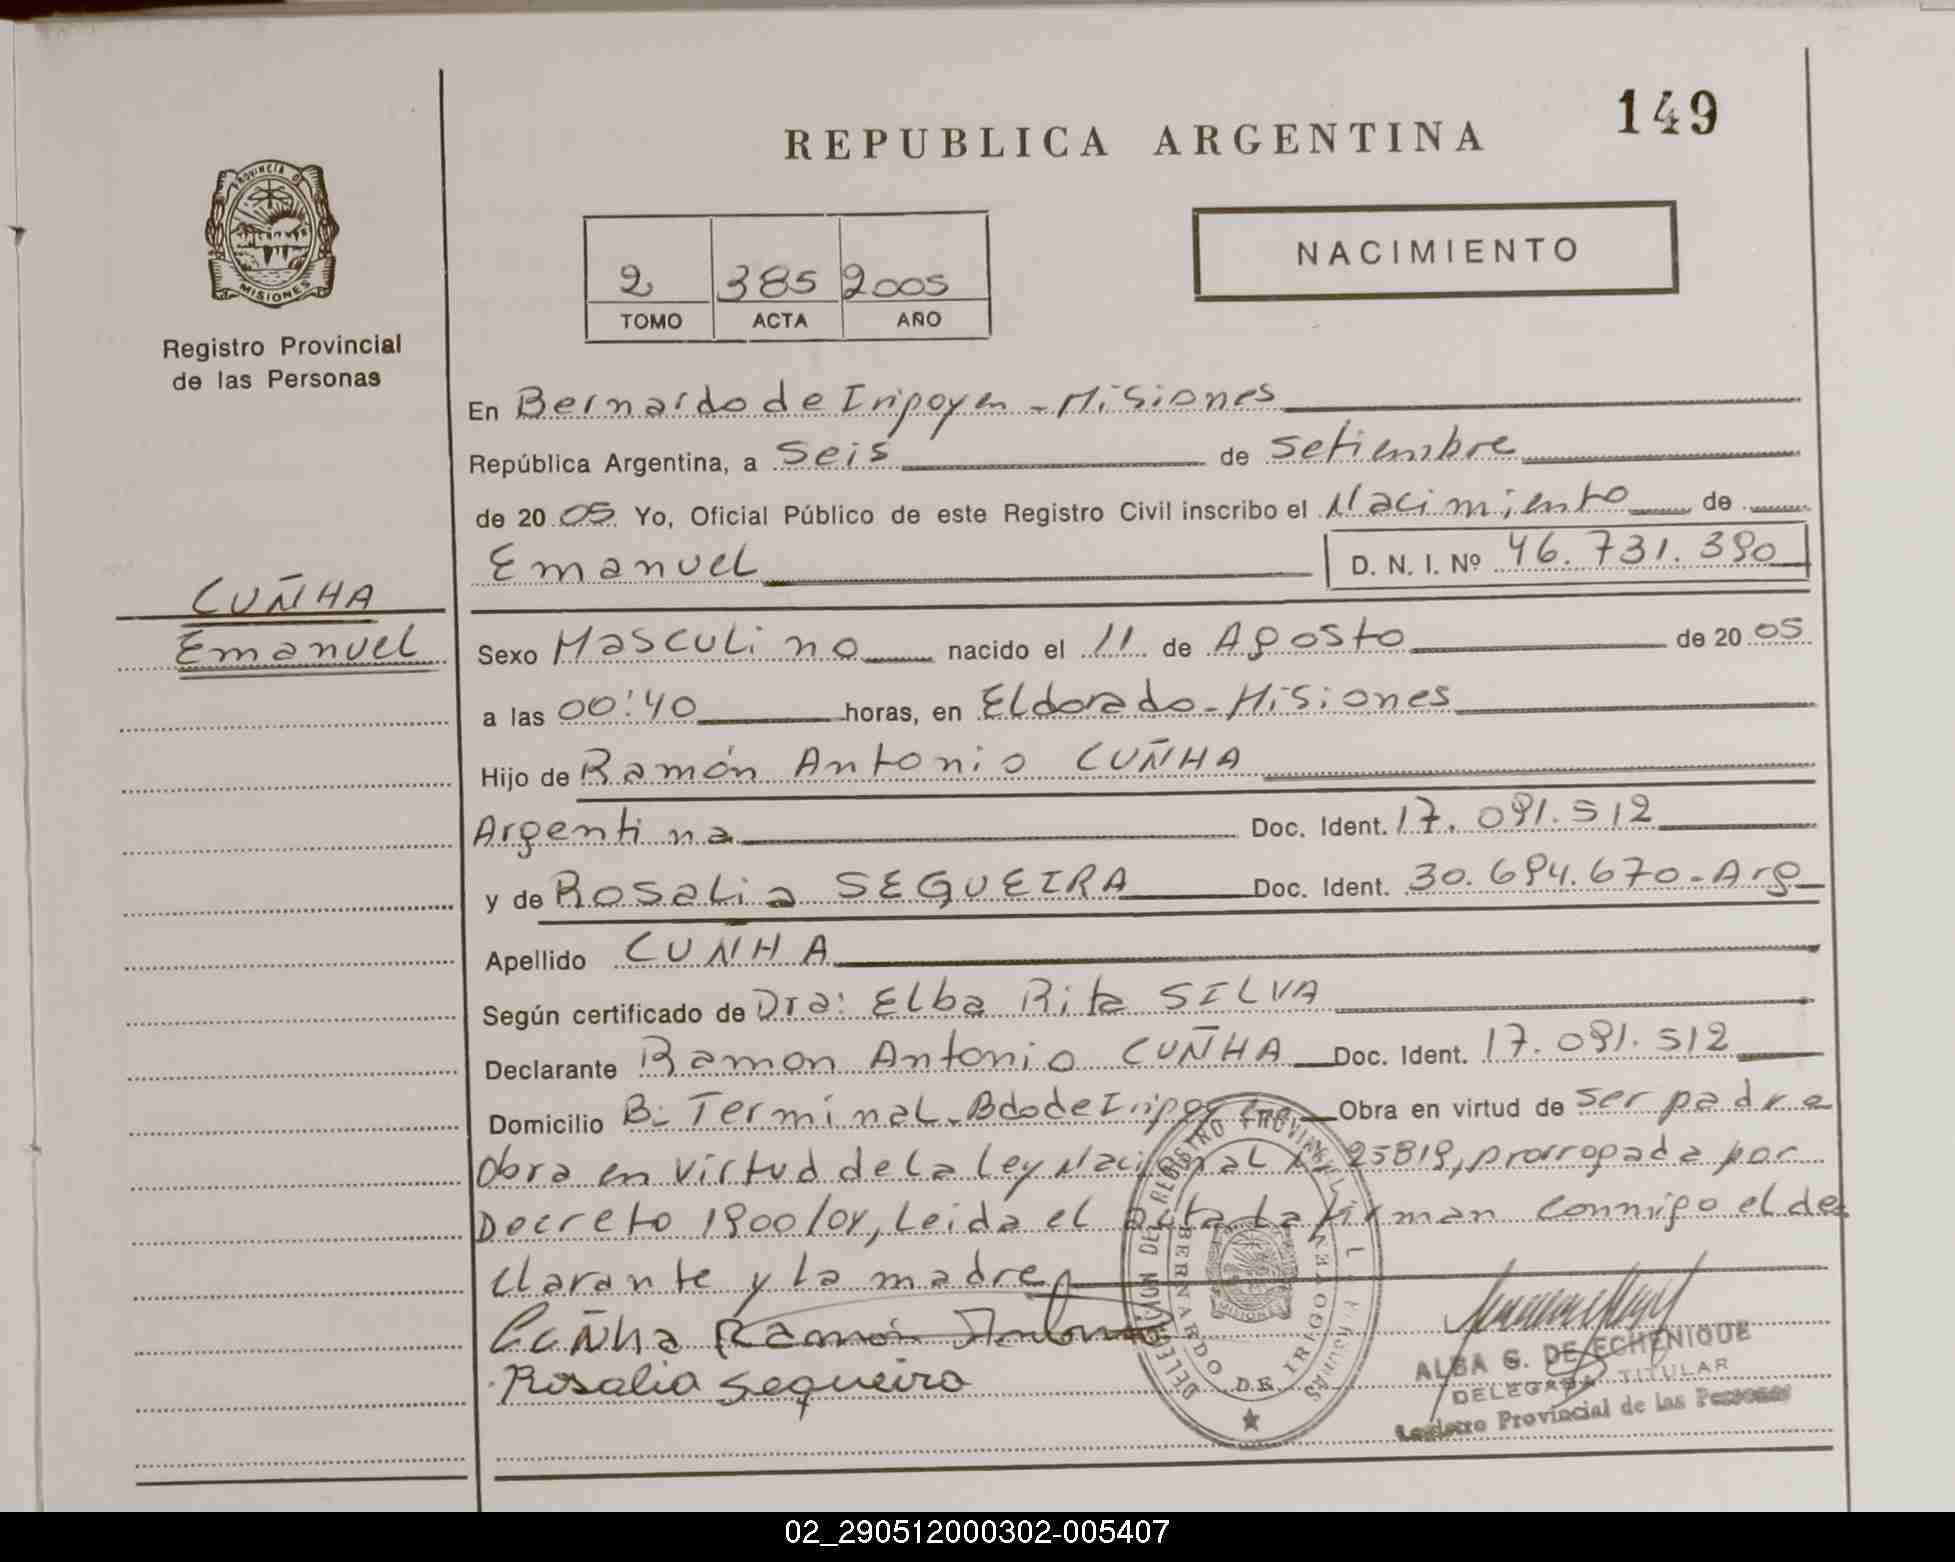 149
REPUBLICA ARGENTINA
PROVINCIA DE
MISIONES
Registro Provincial
de las Personas
NACIMIENTO
2 385 2005
TOMO ACTA AÑO
En Bernardo de Irigoyen - Misiones
República Argentina, a Seis de Setiembre
de 20 05 Yo, Oficial Público de este Registro Civil inscribo el Nacimiento de
Emanuel D. N. I. Nº 46.731.390
CUÑHA
Emanuel
Sexo Masculino nacido el 11 de Agosto de 20 05
a las 00:40 horas, en Eldorado - Misiones
Hijo de Ramón Antonio CUÑHA
Argentina Doc. Ident. 17.091.512
y de Rosalia SEQUEIRA Doc. Ident. 30.694.670 - Arg
Apellido CUÑHA
Según certificado de Dra: Elba Rita SILVA
Declarante Ramon Antonio CUÑHA Doc. Ident. 17.091.512
Domicilio B: Terminal - Bdo de Irigoyen Obra en virtud de ser padre
Obra en virtud de la Ley Nacional Nº 25819, prorrogada por
Decreto 1900/04, Leida el acta La firman conmigo el de
clarante y la madre
Cuñha Ramón Antonio
Rosalia Sequeira
DELEGACION DEL REGISTRO PROVINCIAL DE LAS PERSONAS
BERNARDO DE IRIGOYEN
MISIONES
ALBA G. DE ECHENIQUE
DELEGADA TITULAR
Registro Provincial de las Personas
02_290512000302-005407